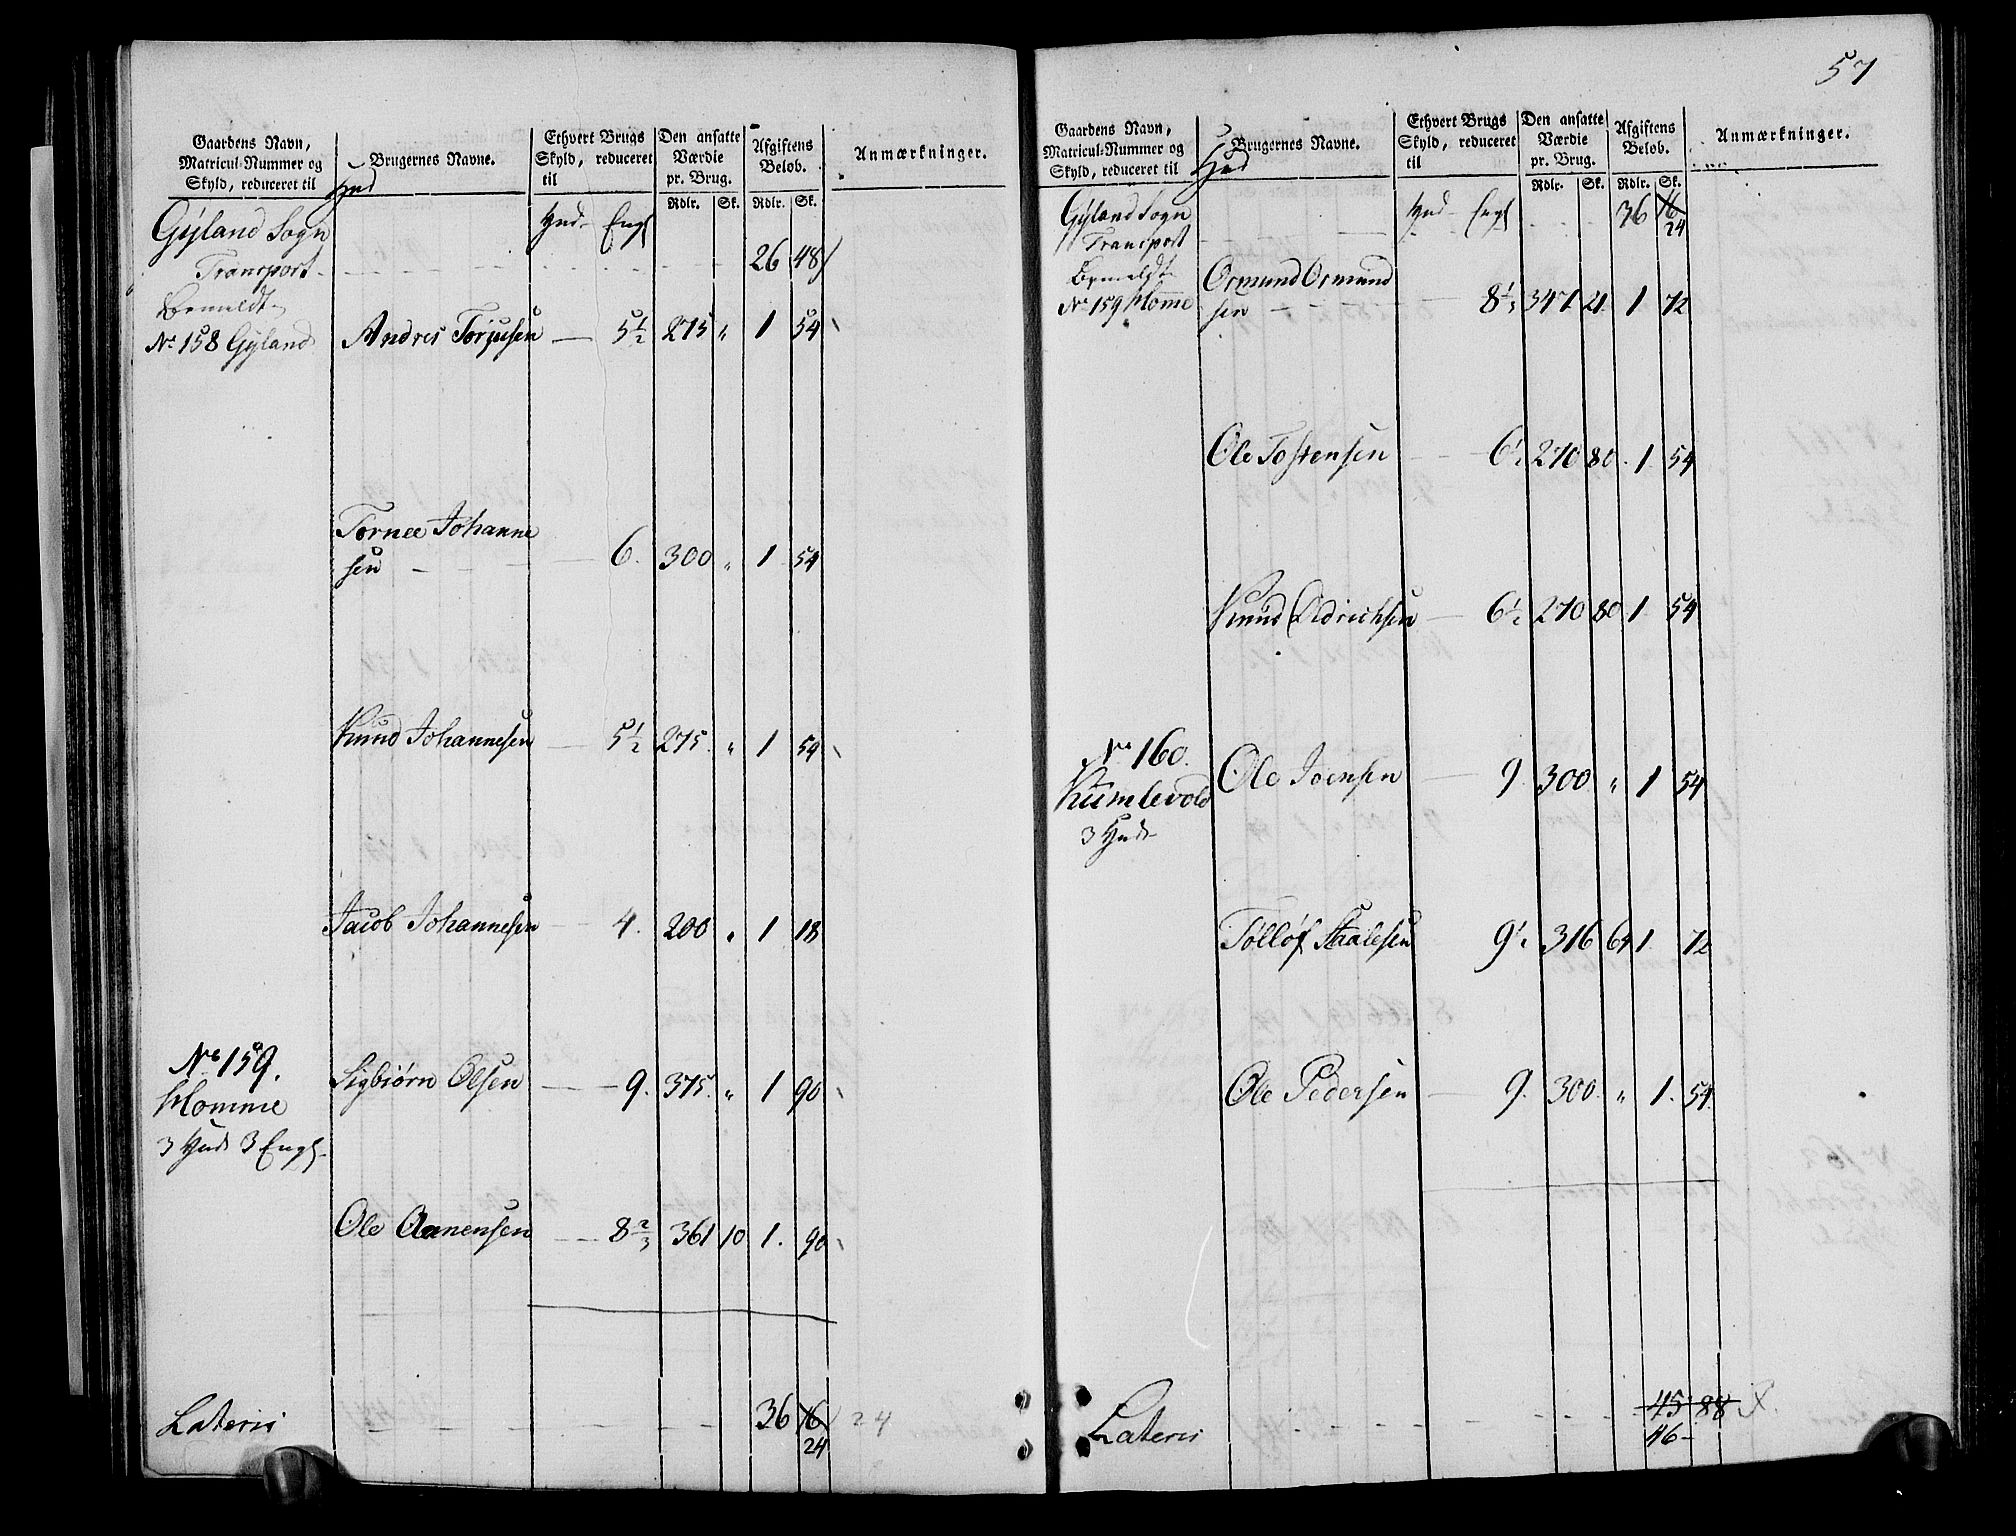 Gaardens Navn, Matricul-Nummer og Skyld, reduceret til
Hud
Brugernes Navne.
Ethvert Brugs Skyld, reduceret til
Den ansatte Værdie pr. Brug.
Afgiftens Beløb.
Anmærkninger.
Rdlr. Sk. Rdlr. Sk.
Gyland Sogn Hud Engl
Transport 26 48
bemeldt
No 158 Gyland Andres Torjusen 5 1/2 275 " 1 54
Tornee Johanne
sen 6. 300 " 1 54
Knud Johannesen 5 1/2 275. " 1 54
Jacob Johannesen 4. 200 " 1 18
No 159. Sigbiørn Olsen 9. 375. " 1 90
Homme
3 Hud 3 Engl
Ole Aanensen 8 2/3 361 10 1. 90
Lateris 36 16 24
24
57
Gaardens Navn, Matricul-Nummer og Skyld, reduceret til
Hud
Brugernes Navne.
Ethvert Brugs Skyld, reduceret til
Den ansatte Værdie pr. Brug.
Afgiftens Beløb.
Anmærkninger.
Rdlr. Sk. Rdlr. Sk.
Gyland Sogn Hud Engl 36 16
24
Transport
bemeldt Ormund Ormund
No 159 Homme sen 8 1/3 347 21 1 72
Ole Tostensen 6 1/2 270 80 1 54
Knud Oldrichsen 6 1/2 270 80 1 54
No 160. Ole Joensen 9 300 " 1 54
Kumlevold
3 Hud
Tolløf Staalesen 9 1/2 316 64 1 72
Ole Pedersen 9. 300. " 1. 54.
Lateris 45 88
46 -